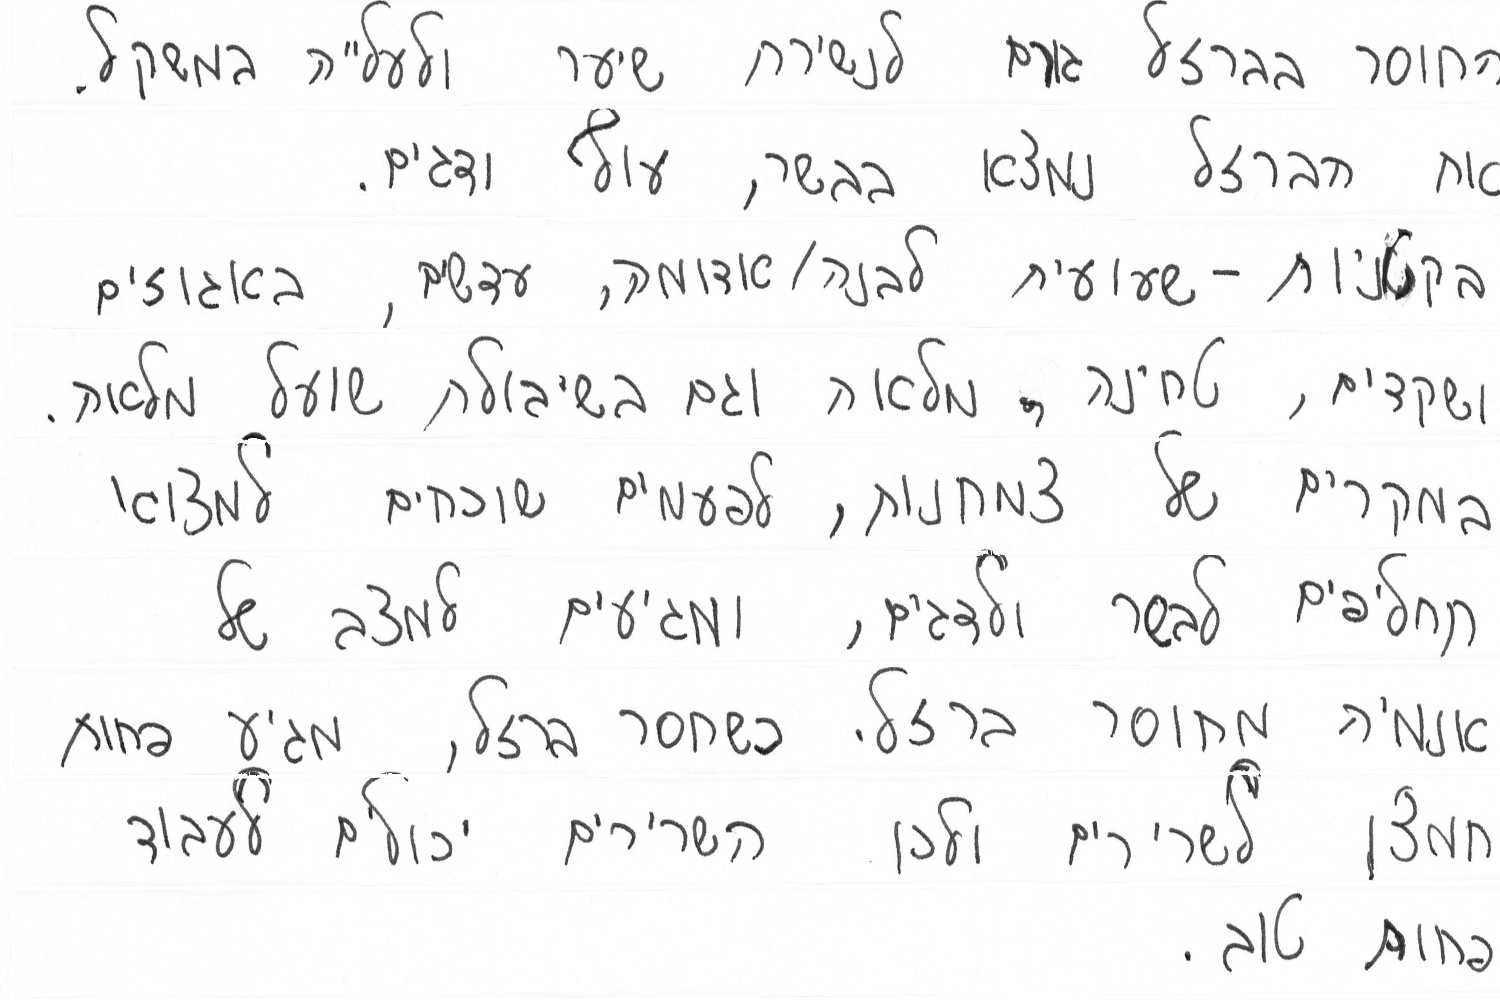 החוסר בברזל גורם לנשירת שיער ולעל"יה במשקל.
את הברזל נמצא בבשר, עוף ודגים.
בקטניות - שעועית לבנה/אדומה, עדשים, באגוזים
ושקדים, טחינה מלאה וגם בשיבולת שועל מלאה.
במקרים של צמחונות, לפעמים שוכחים למצוא
תחליפים לבשר ולדגים, ומגיעים למצב של
אנמיה מחוסר ברזל. כשחסר ברזל, מגיע פחות
חמצן לשרירים ולכן השרירים יכולים לעבוד
פחות טוב.